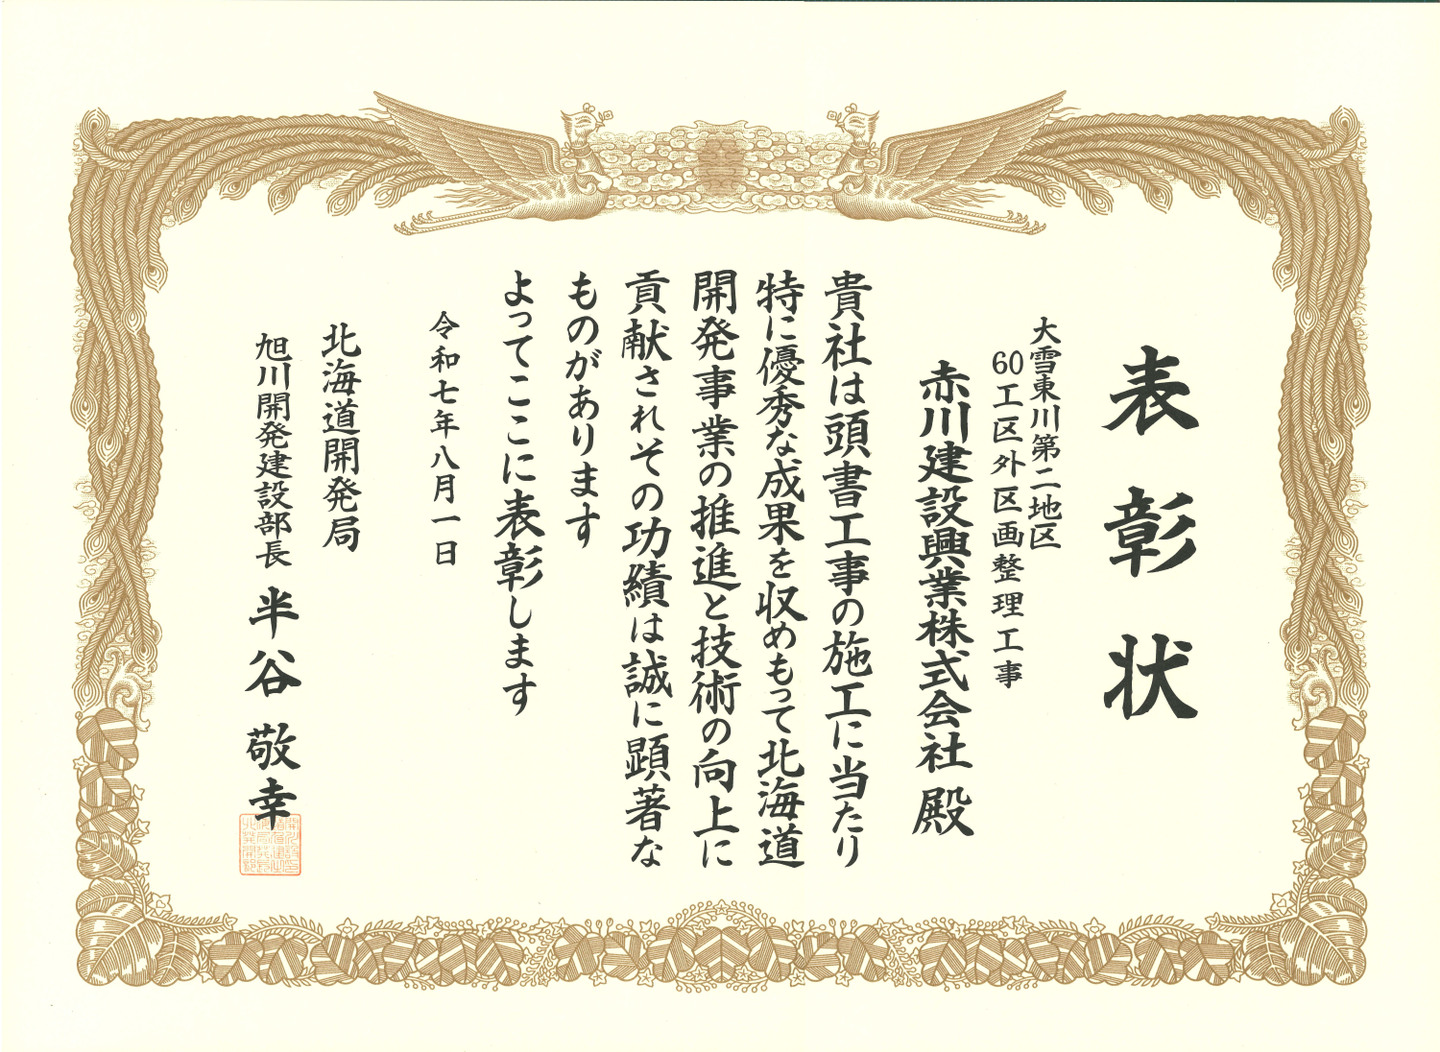 表彰状
大雪東川第二地区
60工区外区画整理工事
赤川建設興業株式会社 殿
貴社は頭書工事の施工に当たり
特に優秀な成果を収めもって北海道
開発事業の推進と技術の向上に
貢献されその功績は誠に顕著な
ものがあります
よってここに表彰します
令和七年八月一日
北海道開発局
旭川開発建設部長 半谷 敬幸